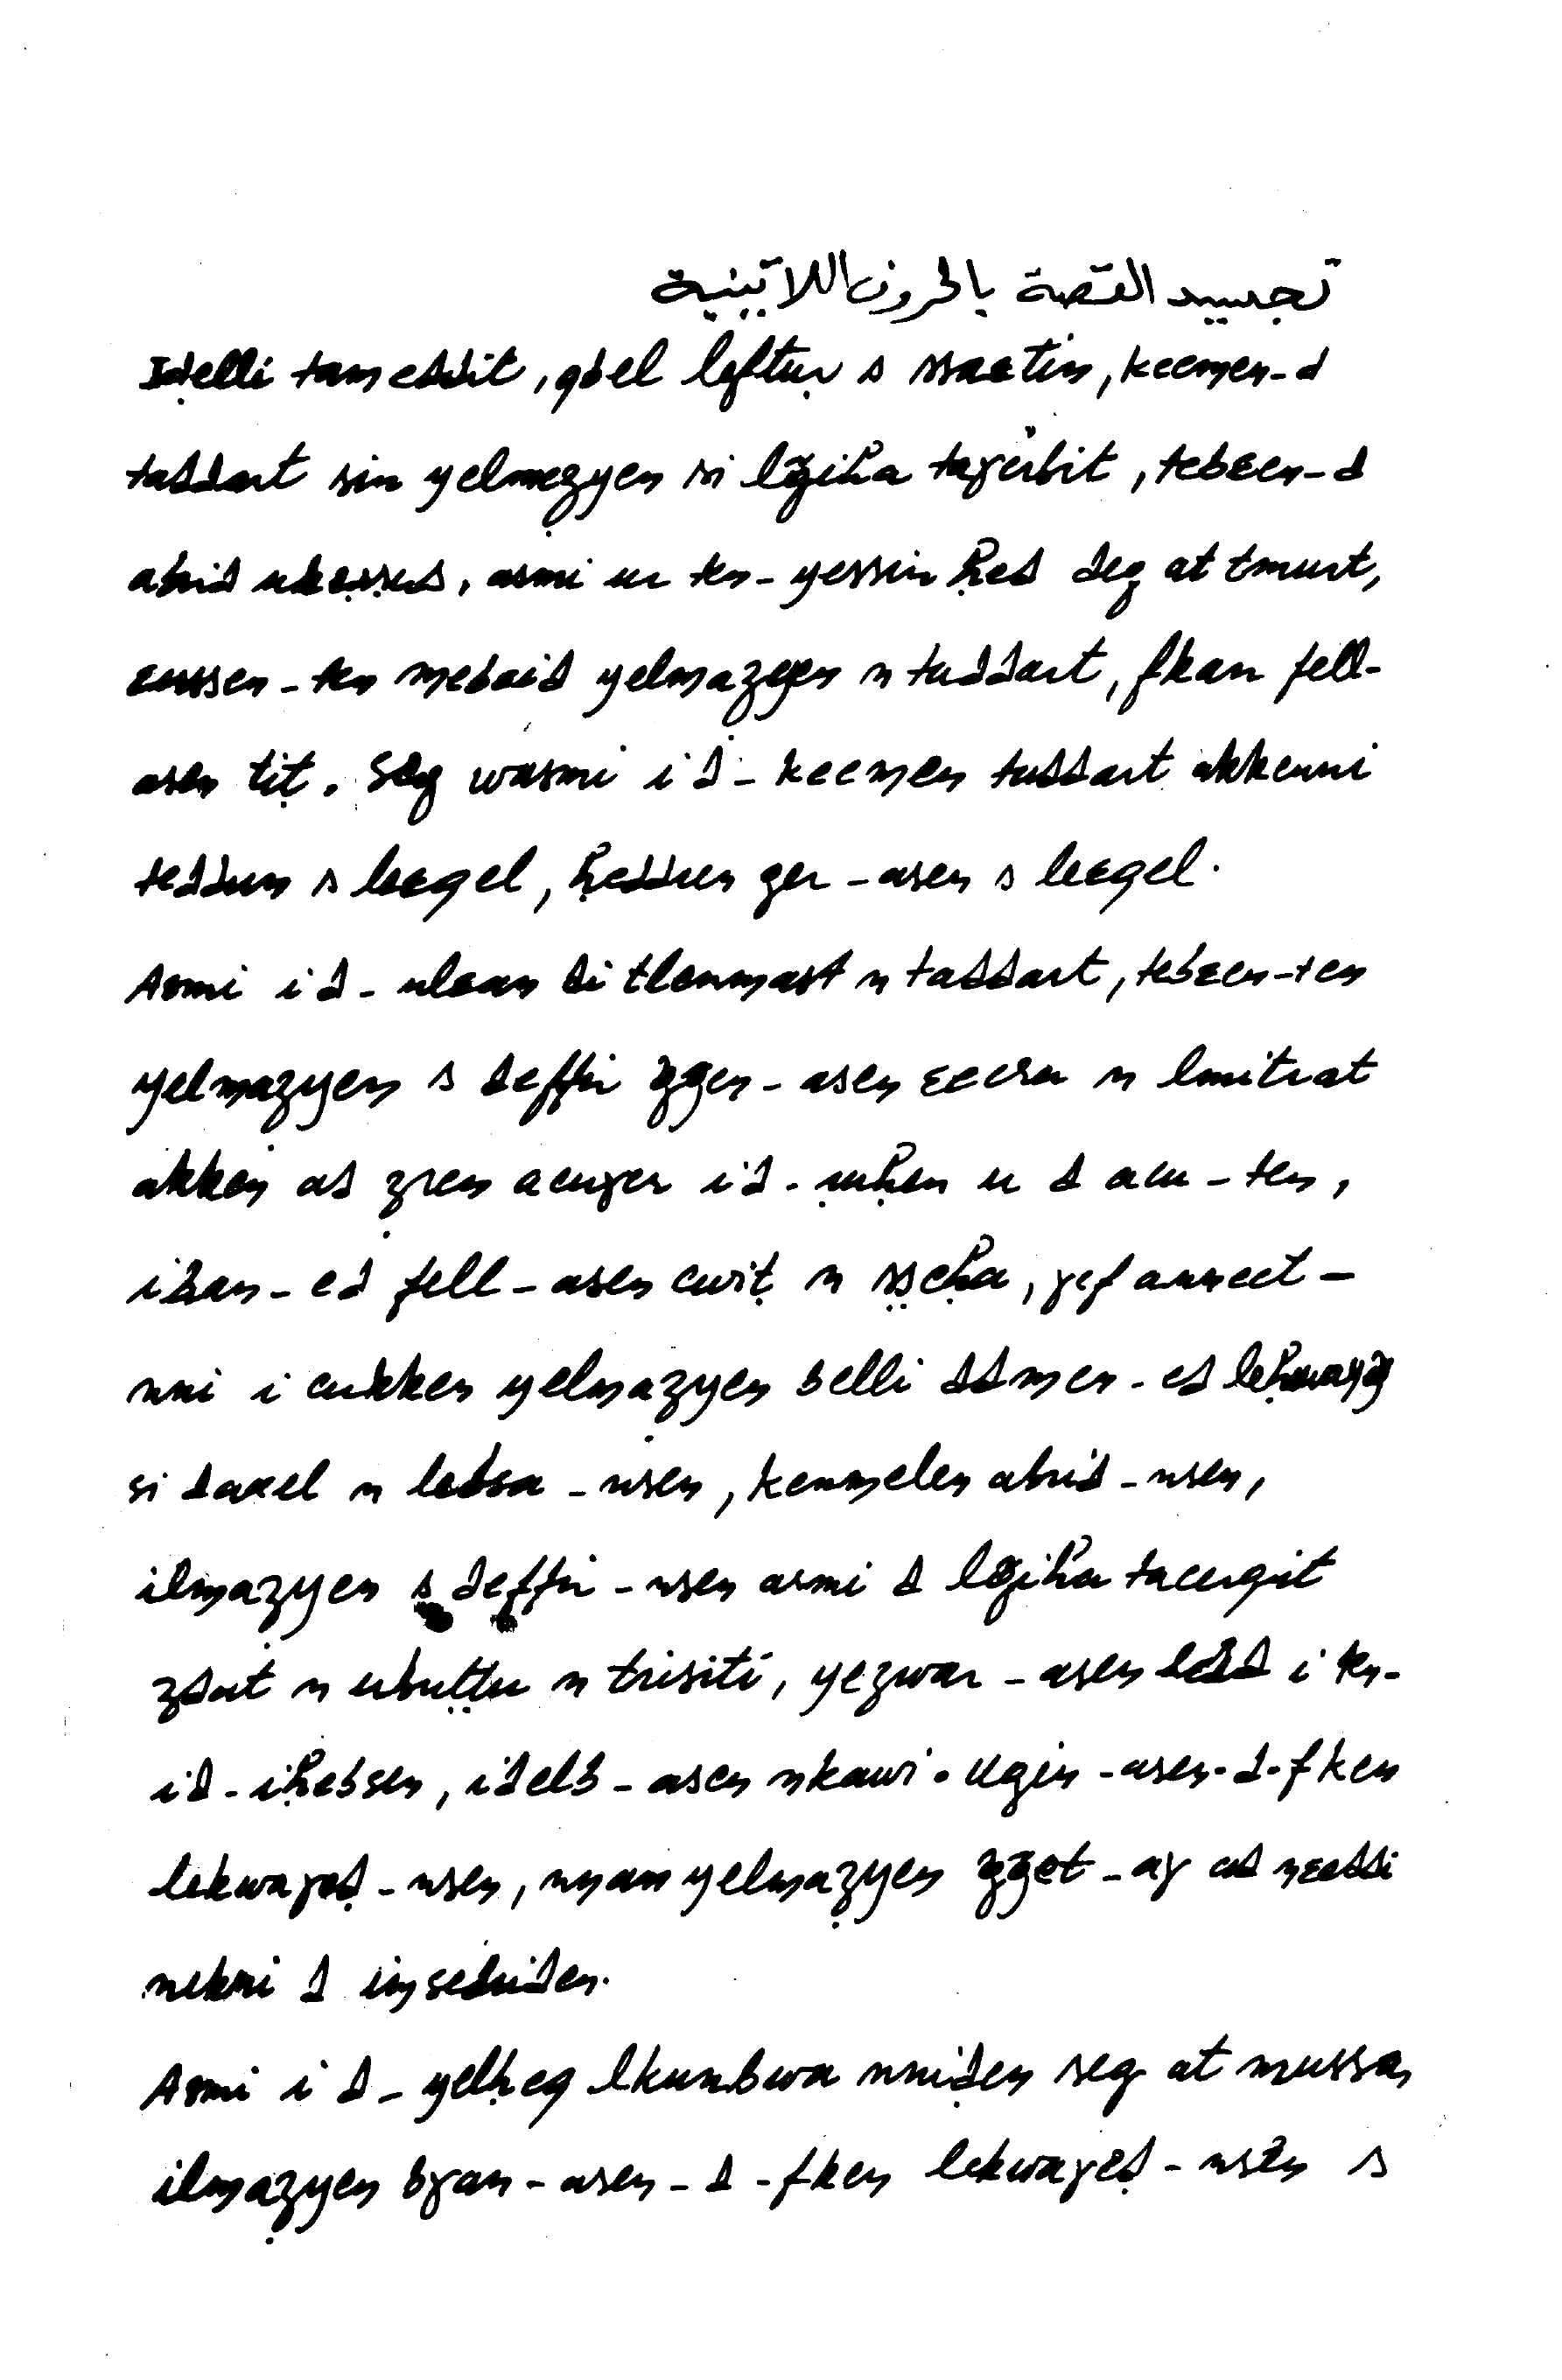 تجسيد القصة بالحروف اللاتينية
Iḍelli tameddit, qbel lefṭuṛ s ssaɛtin, kecmen-d
taddart sin yelmeẓyen si lǧiha taɣerbit, tebɛen-d
abrid uḵeṣṣuḍ, asmi ur ten-yessin ḥed deg at tmurt,
ɛussen-ten mebɛid yelmaẓyen n taddart, fkan fell-
asen tiṭ. Seg wasmi i d-kecmen taddart akkenni
teddun s leɛqel, heddren ger-asen s leɛqel.
Asmi i d-ulɛan di tlemmast n taddart, tebɛen-ten
yelmaẓyen s deffir ǧǧen-asen ɛecra n lmitrat
akken ad ẓren acuɣer i d-ruḥen u d acu-ten,
iban-ed fell-asen cwiṭ n ṣṣeḥa, ɣef annect-
nni i cukken yelmaẓyen belli ddmen-ed leḥwayǧ
si daxel n lebsa-nsen, kemmelen abrid-nsen,
ilmaẓyen s deffir-nsen asmi d lǧiha tacerqit
zdat n ubuṭṭu n trisiti, yezwar-asen leɛd i ten-
id-iḥebsen, iḍelb-asen nkawi. Ugin-asen-d-fken
lekwaɣeḍ-nsen, nnan yelmaẓyen ǧǧet-aɣ ad nɛeddi
nekni d imsebriden.
Asmi i d-yelḥeq lkunbwa nniḍen seg at mussa,
ilmaẓyen bɣan-asen-d-fken lekwaɣeḍ-nsen s